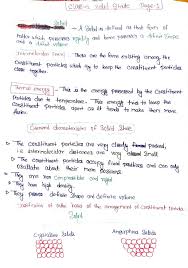 Class-12 Solid State Page-1
Solid
→ A Solid is defined as that form of
matter which possesses rigidity and hence possesses a definite shape
and a definite volume.
Intermolecular Forces → These are the forces existing among the
constituent particles which try to keep the constituent particles
close together.
Thermal energy → It is the energy possessed by the constituent
particles due to temperature. This energy tries to keep the
constituent particles apart as it tends to make them
move.
General characteristics of Solid State
→ The constituent particles are very closely packed,
i.e. intermolecular distances are very small
→ The constituent particles occupy fixed positions and can only
oscillate about their mean positions.
→ They are incompressible and rigid
→ They have high density.
→ They possess definite shape and definite volume.
Classification of solids based on the arrangement of constituent particles
Solid
Crystalline Solids Amorphous Solids